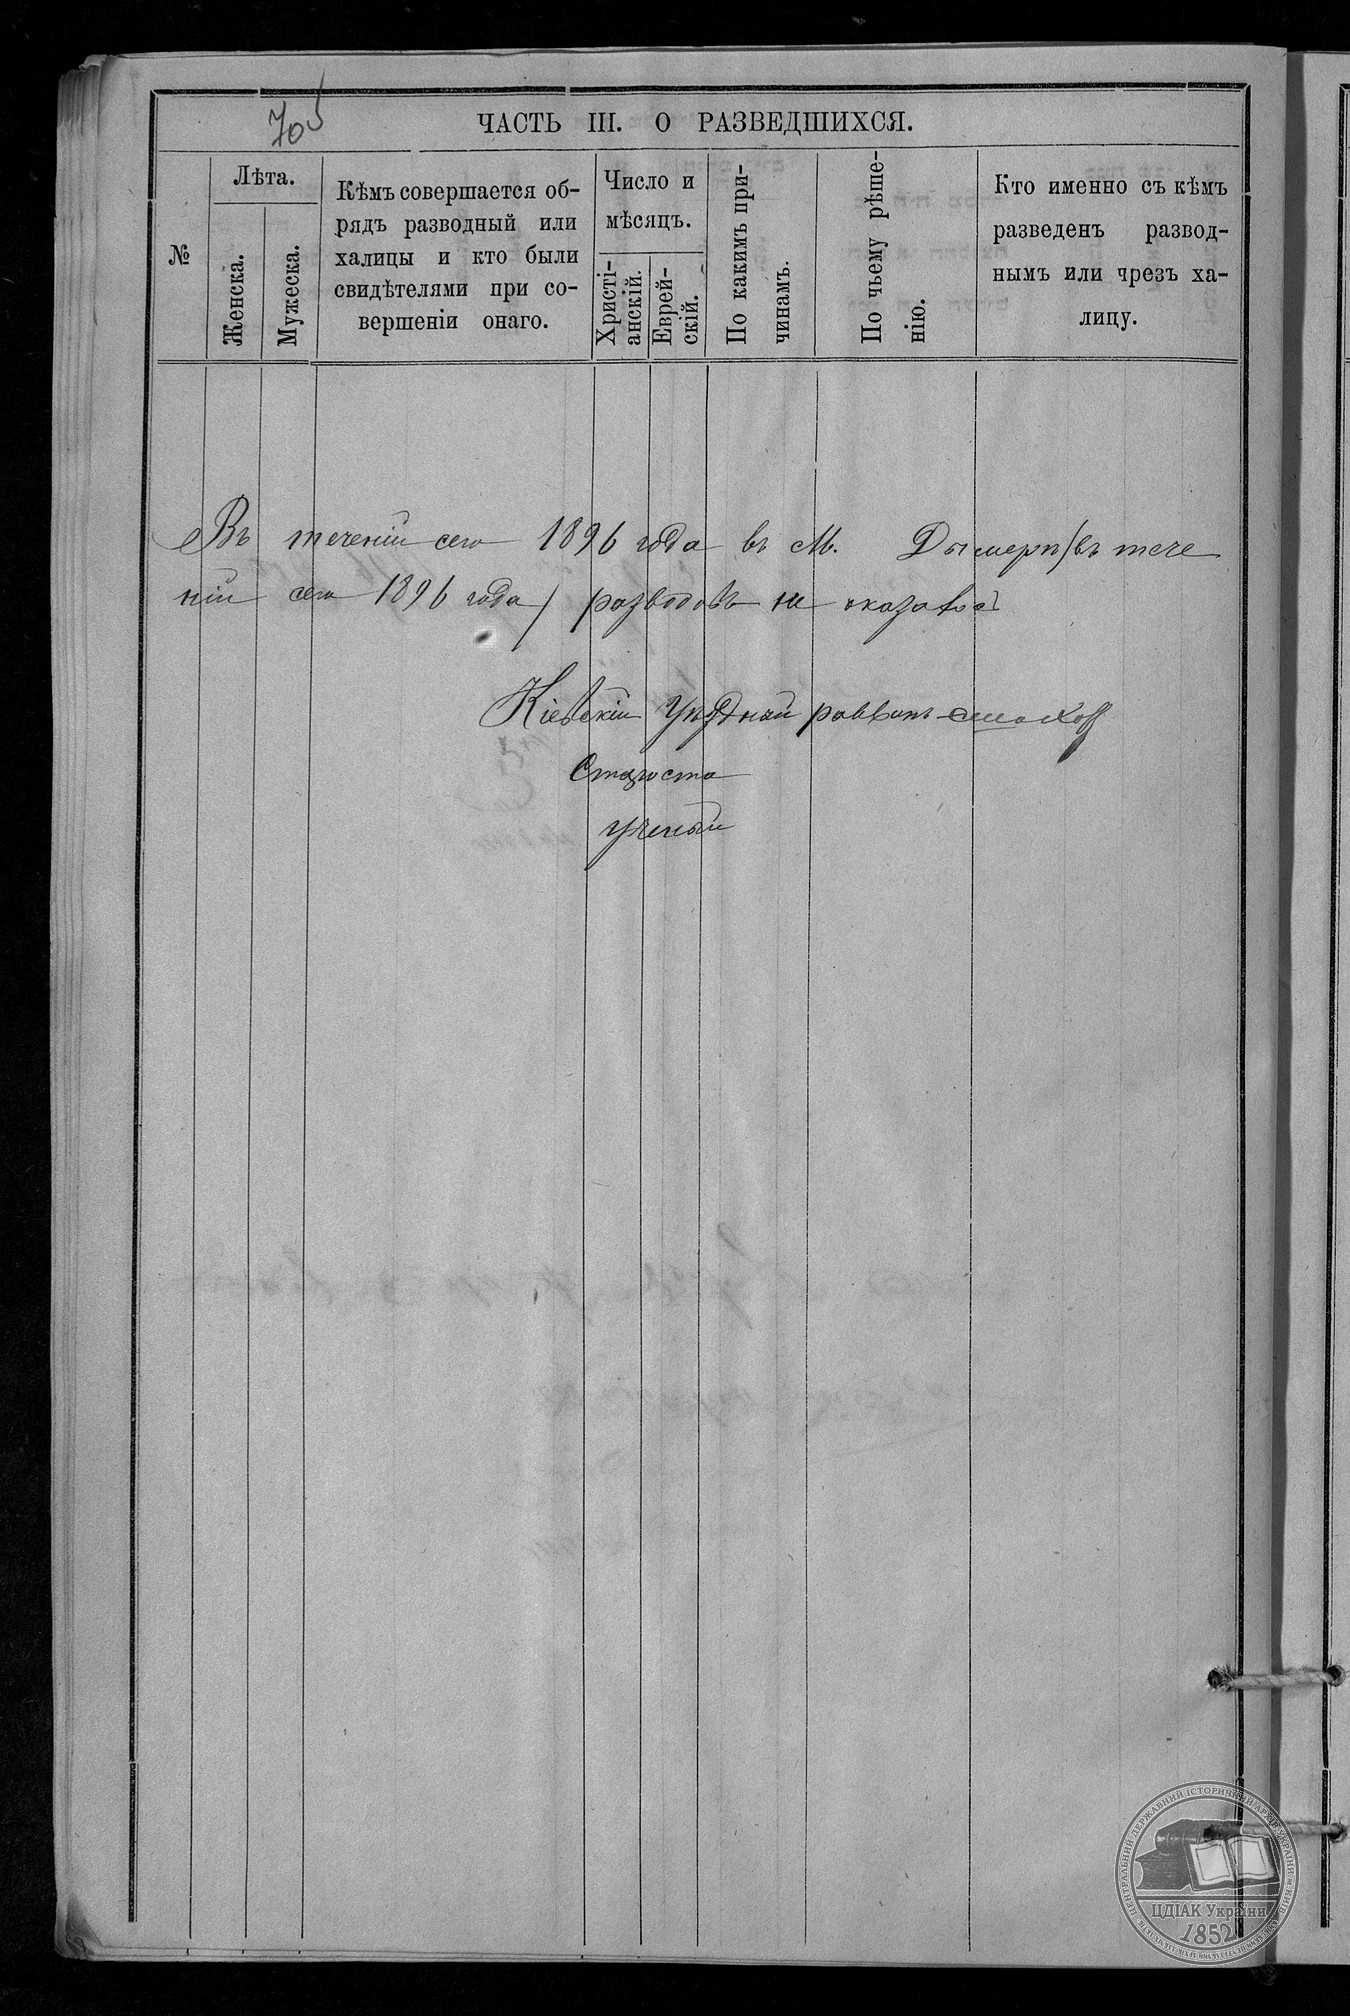 705
ЧАСТЬ III. О РАЗВЕДШИХСЯ.
№
Лѣта.
Женска.
Мужеска.
Кѣмъ совершается об-
рядъ разводный или
халицы и кто были
свидѣтелями при со-
вершеніи онаго.
Число и
мѣсяцъ.
Христі-
анскій.
Еврей-
скій.
По какимъ при-
чинамъ.
По чьему рѣше-
нію.
Кто именно съ кѣмъ
разведенъ развод-
нымъ или чрезъ ха-
лицу.
Въ теченіи сего 1896 года въ М. Дымерѣ (въ тече
ніи сего 1896 года) разводовъ не оказалось
Кіевскій Уѣздный раввинъ
Староста
Ученый
ЦЕНТРАЛЬНИЙ ДЕРЖАВНИЙ ІСТОРИЧНИЙ АРХІВ УКРАЇНИ м. КИЇВ
ЦДІАК України
1852